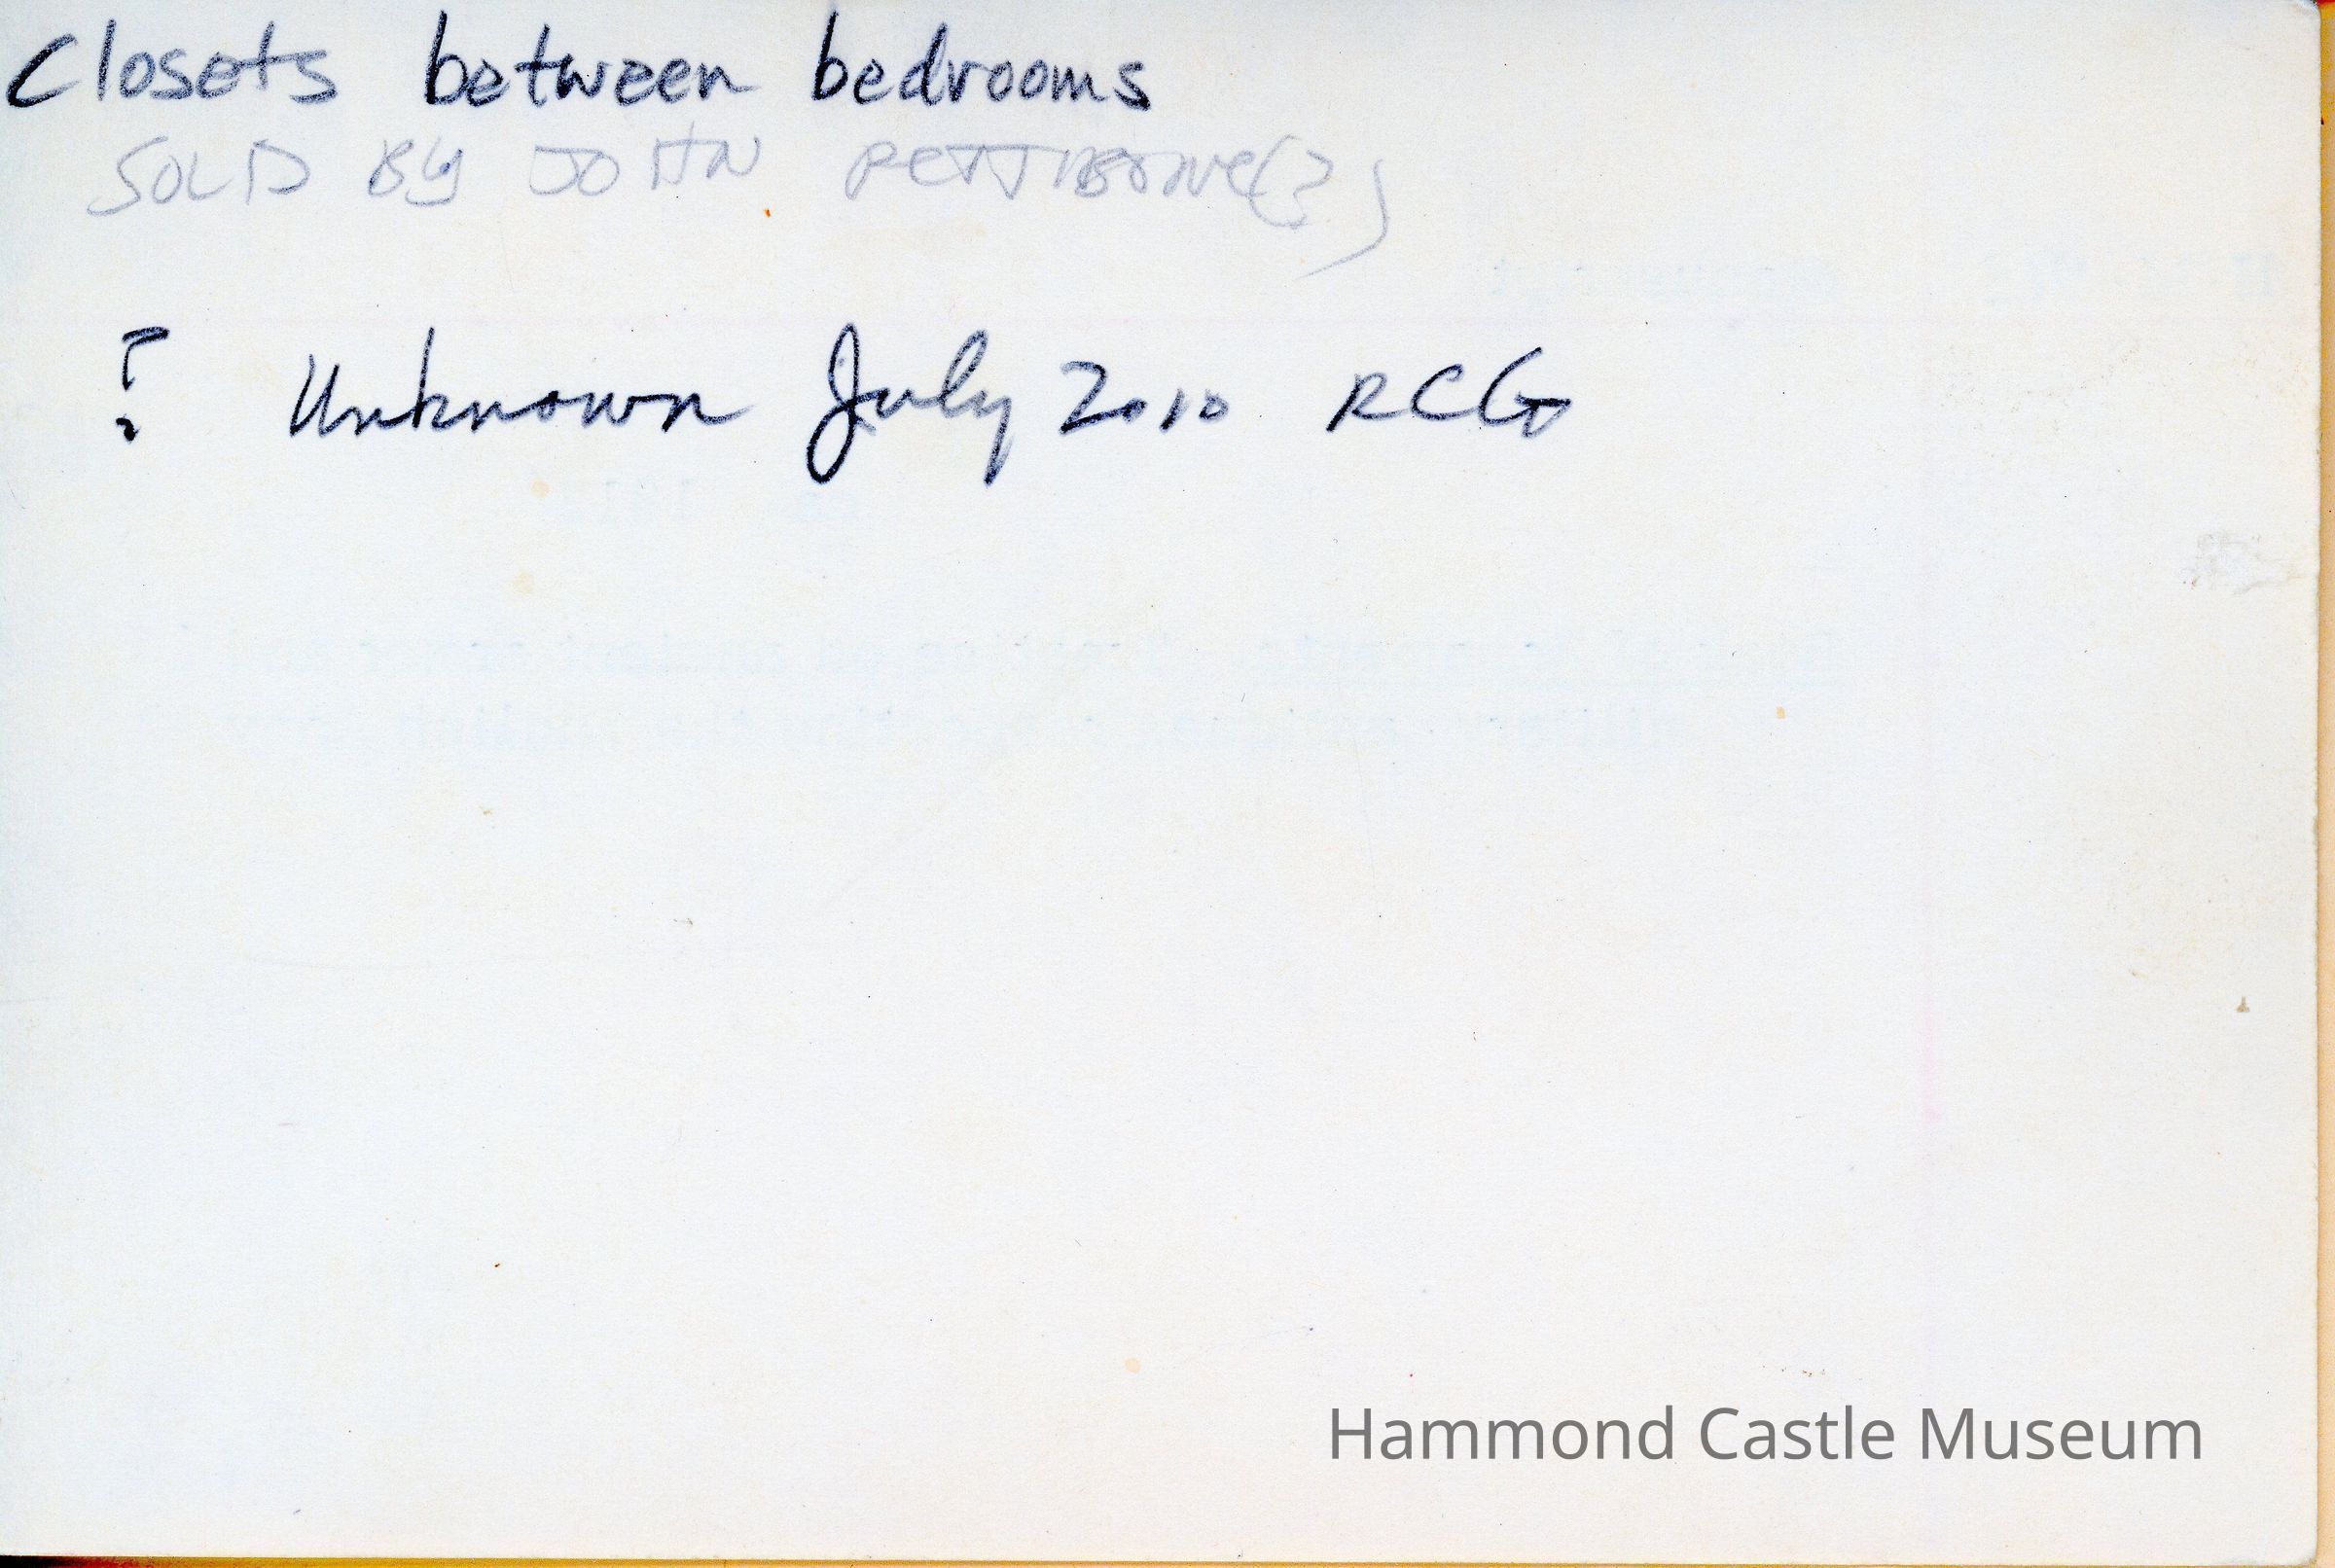 Closets between bedrooms
SOLD BY JOHN PETTIBONE(?)
? Unknown July 2010 RCG
Hammond Castle Museum